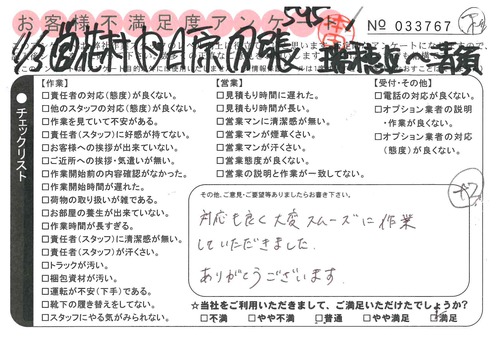 お客様不満足度アンケート
545
№ 033767
チェックリスト
【作業】
□責任者の対応(態度)が良くない。
□他のスタッフの対応(態度)が良くない。
□作業を見ていて不安がある。
□責任者(スタッフ)に好感が持てない。
□お客様への挨拶が出来ていない。
□ご近所への挨拶・気遣いが無い。
□作業開始前の内容確認がなかった。
□作業開始時間が遅れた。
□荷物の取り扱いが雑である。
□お部屋の養生が出来ていない。
□作業時間が長すぎる。
□責任者(スタッフ)に清潔感が無い。
□責任者(スタッフ)が汗くさい。
□トラックが汚い。
□梱包資材が汚い。
□運転が不安(下手)である。
□靴下の履き替えをしてない。
□スタッフにやる気がみられない。
【営業】
□見積もり時間に遅れた。
□見積もり時間が長い。
□営業マンに清潔感が無い。
□営業マンが煙草くさい。
□営業マンが汗くさい。
□営業態度が良くない。
□営業の説明と作業が一致してない。
【受付・その他】
□電話の対応が良くない。
□オプション業者の説明
・作業が良くない。
□オプション業者の対応
(態度)が良くない。
その他、ご意見・ご要望等ありましたらお書き下さい。
対応も良く大変スムーズに作業
していただきました。
ありがとうございます
☆当社をご利用いただきまして、ご満足いただけたでしょうか?
□不満 □やや不満 □普通 □やや満足 □満足